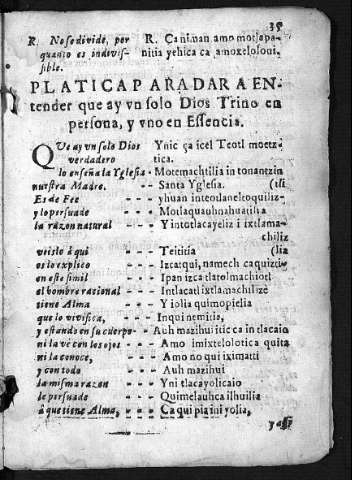 35
R. No se divide, por R. Ca niman amo motlapa-
quanto es indivis- nitia yehica ca amoxeloloni.
sible.
PLATICA PARA DAR A EN-
tender que ay vn solo Dios Trino en
persona, y vno en Essencia.
QVe ay vn solo Dios Ynic ça icel Teotl moetz-
verdadero tica.
lo enseña la Yglesia - Motemachtilia in tonantzin
nuestra Madre. - - Santa Yglesia. (tli
Es de Fee - - - yhuan inteotlaneltoquiliz-
y lo persuade - - - Motlaquauhnahuatilia
la razon natural - - Y intotlacayeliz i ixtlama-
chiliz
veislo à qui - - - Teititia (lia
os lo explico - - - Izcatqui, namech caquizti-
en este simil - - - Ipan izcatlatolmachiotl
el hombre racional - - Intlacatl ixtlamachilize
tiene Alma - - - Y iolia quimopielia
que lo vivifica, - - - Inqui nemitia,
y estando en su cuerpo - - Auh mazihui itic ca in tlacaio
ni la vè con los ojos - - Amo imixtelolotica quita
ni la conoce, - - - Amo no qui iximatti
y con todo - - - Auh mazihui
la misma razon - - - Yni tlacayolicaio
le persuade - - - Quimelauhca ilhuilia
à que tiene Alma, - - - Ca qui pia ini yolia,
y assi